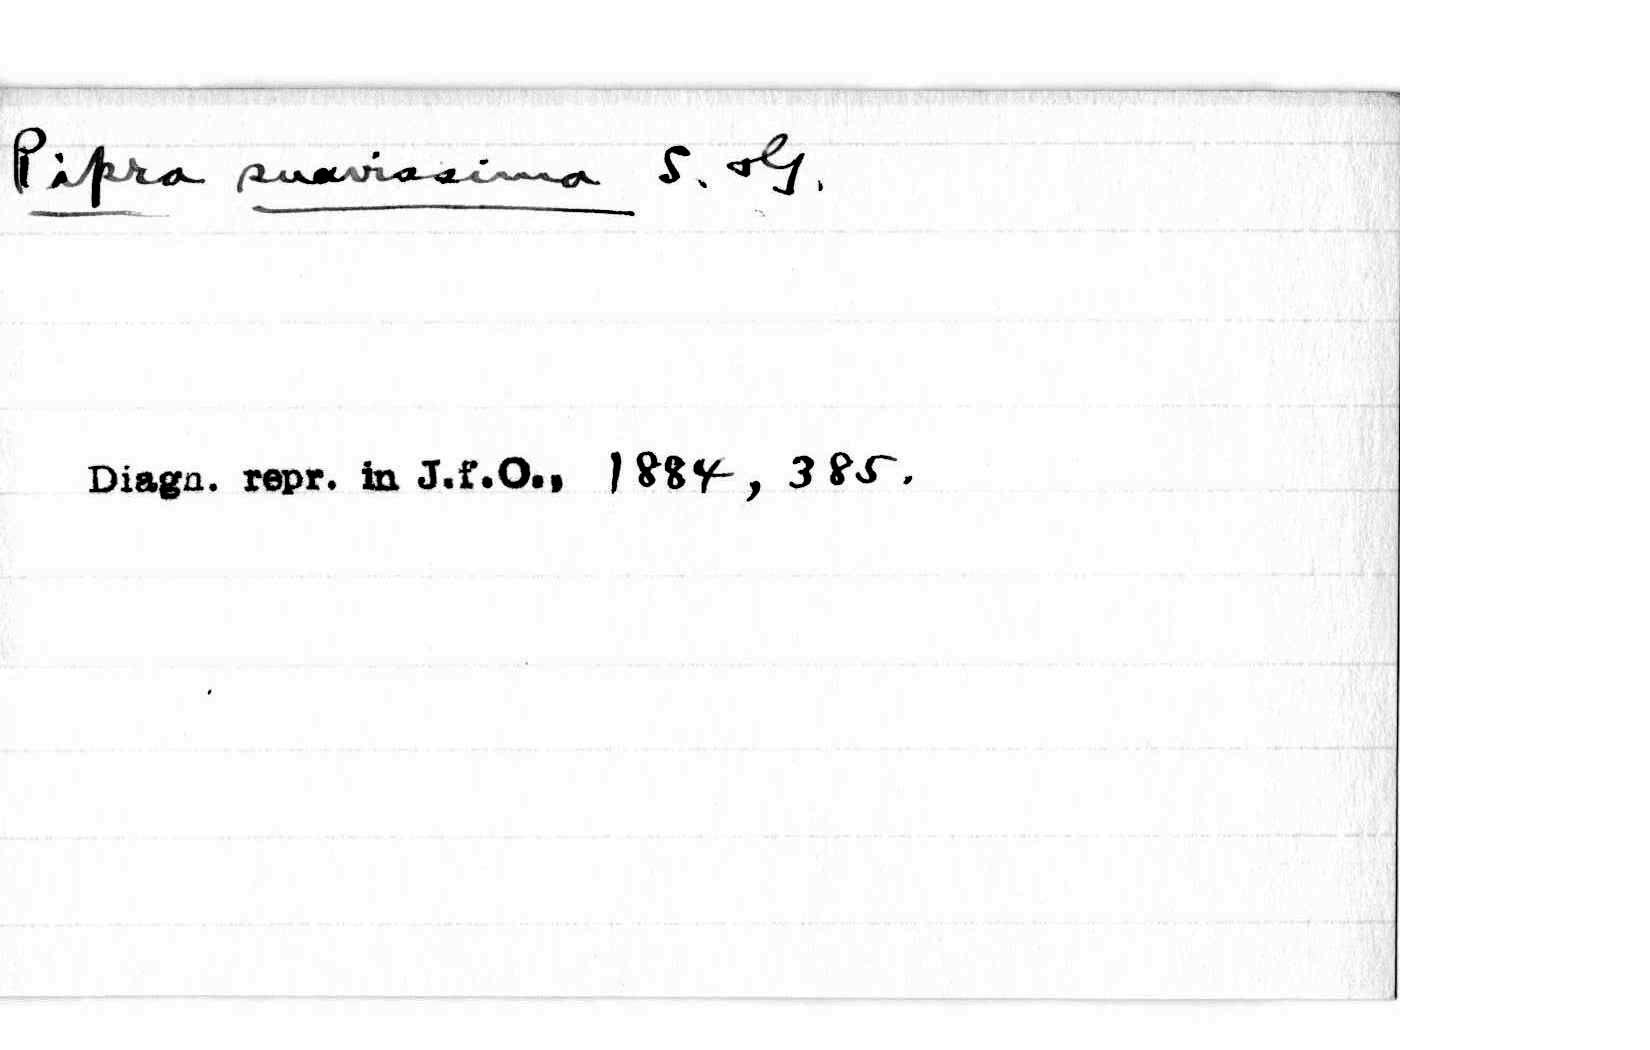 Pipra suavissima S. & G.
Diagn. repr. in J.f.O., 1884, 385.